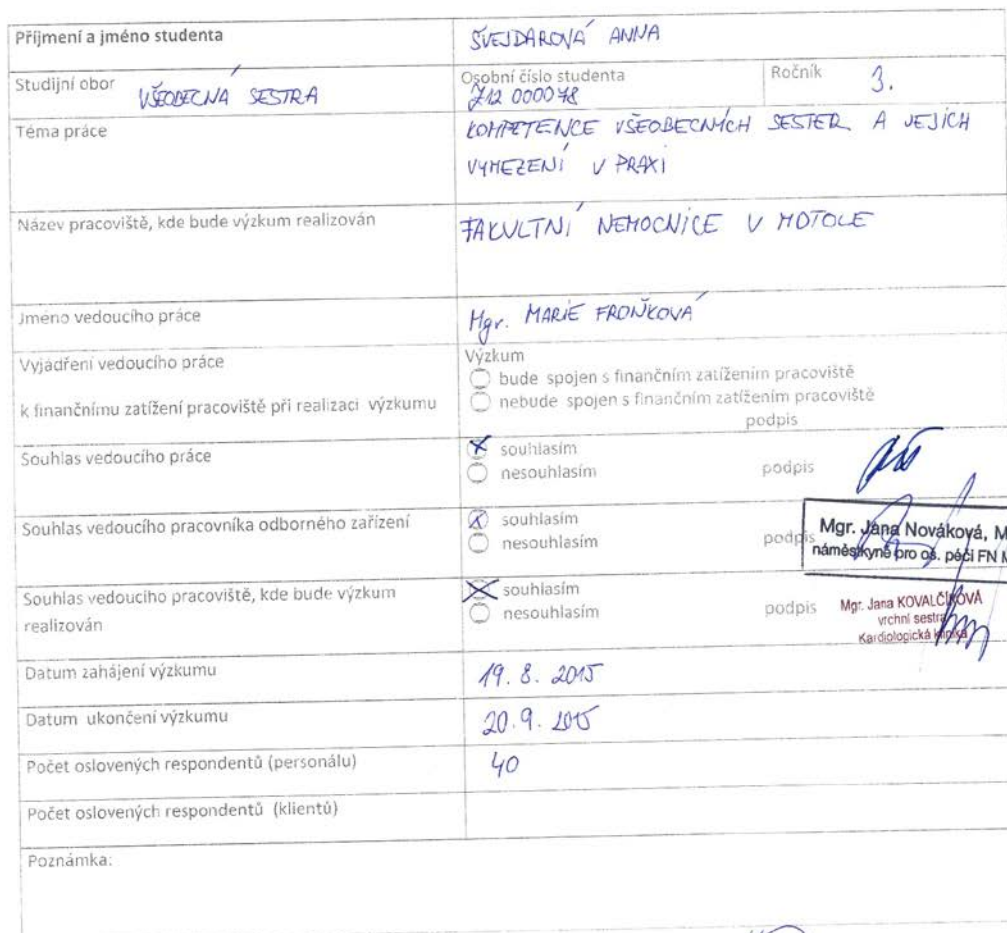 Příjmení a jméno studenta
ŠVEJDAROVÁ ANNA
Studijní obor
VŠEOBECNÁ SESTRA
Osobní číslo studenta
Z12 000078
Ročník
3.
Téma práce
KOMPETENCE VŠEOBECNÝCH SESTER A JEJICH
VYMEZENÍ V PRAXI
Název pracoviště, kde bude výzkum realizován
FAKULTNÍ NEMOCNICE V MOTOLE
Jméno vedoucího práce
Mgr. MARIE FROŇKOVÁ
Vyjádření vedoucího práce
k finančnímu zatížení pracoviště při realizaci výzkumu
Výzkum
bude spojen s finančním zatížením pracoviště
nebude spojen s finančním zatížením pracoviště
podpis
Souhlas vedoucího práce
souhlasím
nesouhlasím
podpis
Souhlas vedoucího pracovníka odborného zařízení
souhlasím
nesouhlasím
podpis
Mgr. Jana Nováková, M
náměstkyně pro oš. péči FN M
Souhlas vedoucího pracoviště, kde bude výzkum
realizován
souhlasím
nesouhlasím
podpis
Mgr. Jana KOVALČÍKOVÁ
vrchní sestra
Kardiologická klinika
Datum zahájení výzkumu
19. 8. 2015
Datum ukončení výzkumu
20. 9. 2015
Počet oslovených respondentů (personálu)
40
Počet oslovených respondentů (klientů)
Poznámka: